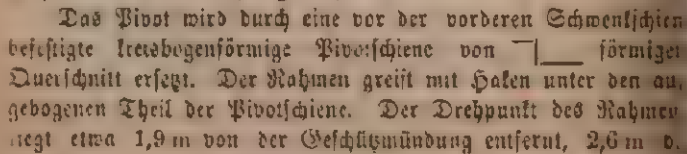 Das Pivot wird durch eine vor der vorderen Schwenkschien
befestigte kreisbogenförmige Pivotschiene von förmiger
Querschnitt ersetzt. Der Rahmen greift mit Haken unter den au
gebogenen Theil der Pivotschiene. Der Drehpunkt des Rahmen
liegt etwa 1,9 m von der Geschützmündung entfernt, 2,6 m